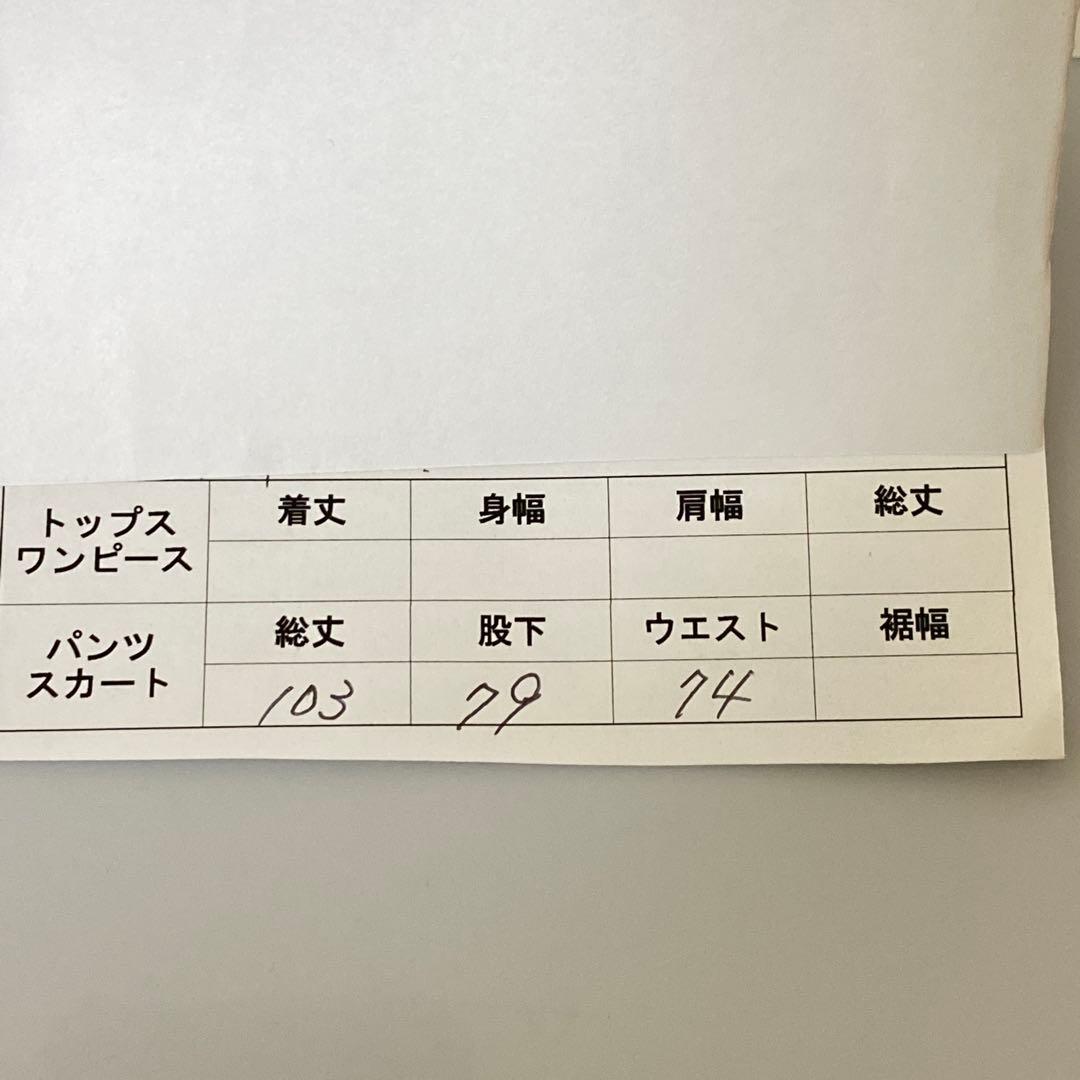 トップス
ワンピース
着丈 身幅 肩幅 総丈
パンツ
スカート
総丈 股下 ウエスト 裾幅
103 79 74